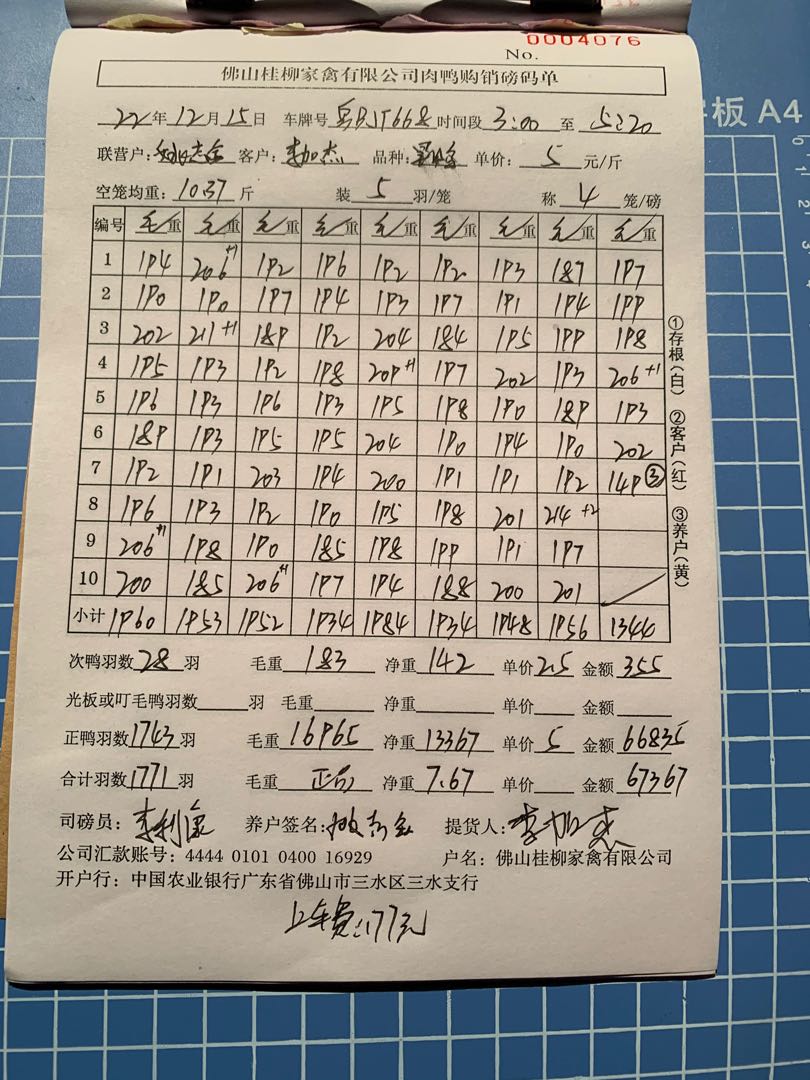 No. 0004076
佛山桂柳家禽有限公司肉鸭购销磅码单
字板 A4
22年12月15日 车牌号 粤BJT668 时间段 3:00 至 5:20
联营户: 客户:李加杰 品种: 单价: 5 元/斤
空笼均重:10.37 斤 装 5 羽/笼 称 4 笼/磅
编号 毛重 毛重 毛重 毛重 毛重 毛重 毛重 毛重 毛重
1 194 206+1 192 196 192 192 193 187 197
2 190 190 197 194 193 197 191 194 199
3 202 211+1 189 192 204 184 195 199 198
4 195 193 192 198 209+1 197 202 193 206+1
5 196 193 196 193 195 198 190 189 193
6 189 193 195 195 204 190 194 190 202
7 192 191 203 194 200 191 191 192 149③
8 196 193 192 190 195 198 201 214+2
9 206+1 198 190 185 198 199 191 197
10 200 185 206+1 197 194 188 200 201
小计 1960 1953 1952 1934 1984 1934 1948 1956 1344
①存根(白) ②客户(红) ③养户(黄)
次鸭羽数28羽 毛重 183 净重 142 单价2.5 金额 355
光板或叮毛鸭羽数 羽 毛重 净重 单价 金额
正鸭羽数1743羽 毛重 16965 净重 13367 单价 5 金额 66835
合计羽数1771羽 毛重 正品 净重 7.67 单价 金额 67367
司磅员: 养户签名: 提货人:李加杰
公司汇款账号:4444 0101 0400 16929 户名:佛山桂柳家禽有限公司
开户行:中国农业银行广东省佛山市三水区三水支行
上车费:177元